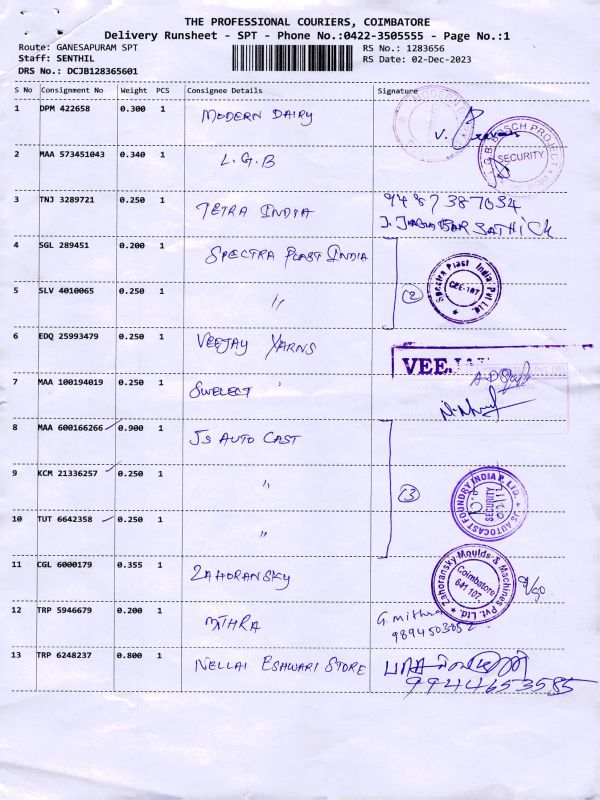 THE PROFESSIONAL COURIERS, COIMBATORE
Delivery Runsheet - SPT - Phone No.:0422-3505555 - Page No.:1
Route: GANESAPURAM SPT
RS No.: 1283656
Staff: SENTHIL
RS Date: 02-Dec-2023
DRS No.: DCJB128365601
S No Consignment No Weight PCS Consignee Details Signature
1 DPM 422658 0.300 1 MODERN DAIRY
V.
2 MAA 573451043 0.340 1 L.G.B
BOSCH PROJECT
SECURITY
3 TNJ 3289721 0.250 1 TETRA INDIA
9487387034
SATHICK
4 SGL 289451 0.200 1 SPECTRA PLAST INDIA
5 SLV 4010065 0.250 1 "
(2)
Spectra Plast India Pvt Ltd.
CBE-107
6 EDQ 25993479 0.250 1 VEEJAY YARNS
VEEJAY
7 MAA 100194019 0.250 1 SWELECT
8 MAA 600166266 0.900 1 JS AUTO CAST
9 KCM 21336257 0.250 1 "
(3)
JS AUTOCAST FOUNDRY INDIA P. LTD.
SECURITY
10 TUT 6642358 0.250 1 "
11 CGL 6000179 0.355 1 ZAHORANSKY
Zahoransky Moulds & Machines Pvt. Ltd.
Coimbatore
641 107
12 TRP 5946679 0.200 1 MITHRA
G. Mithra
13 TRP 6248237 0.800 1 NELLAI ESHWARI STORE
9944653585